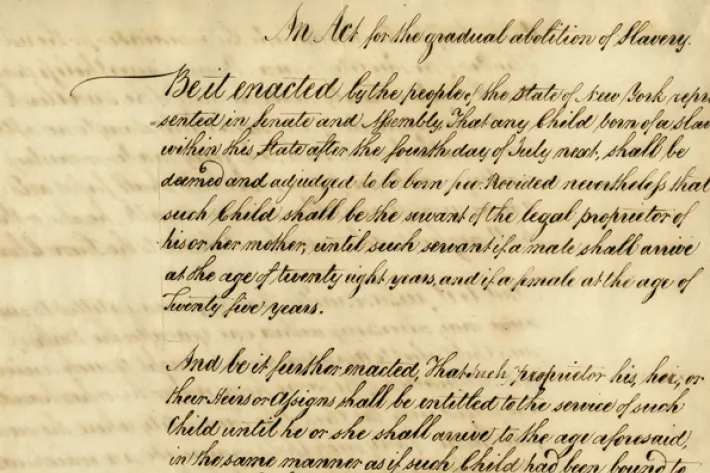 An Act for the gradual abolition of Slavery.
Be it enacted by the people of the State of New York repre
sented in Senate and Assembly, That any Child born of a slav
within this State after the fourth day of July next, shall be
deemed and adjudged to be born free: Provided nevertheless that
such Child shall be the servant of the legal proprietor of
his or her mother, until such servant if a male shall arrive
at the age of twenty eight years, and if a female at the age of
Twenty five years.
And be it further enacted, That such proprietor his, her, or
their Heirs or Assigns shall be entitled to the service of such
Child until he or she shall arrive to the age aforesaid,
in the same manner as if such Child had been bound to